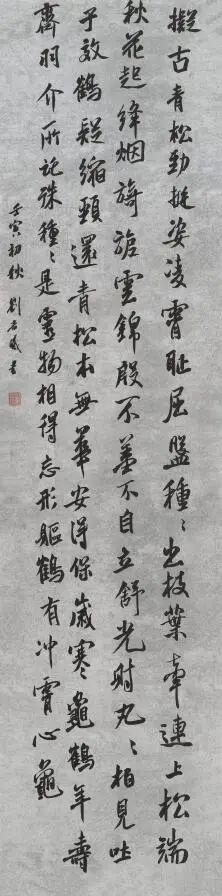 擬古青松勁挺姿凌霄恥屈盤種〻出枝葉牽連上松端
秋花起絳烟旖旎雲錦殷不羞不自立舒光射丸〻柏見吐
子效鶴疑縮頸還青松本無華安得保歲寒龜鶴年壽
齊羽介所託殊種〻是靈物相得忘形軀鶴有冲霄心龜
壬寅初秋劉書